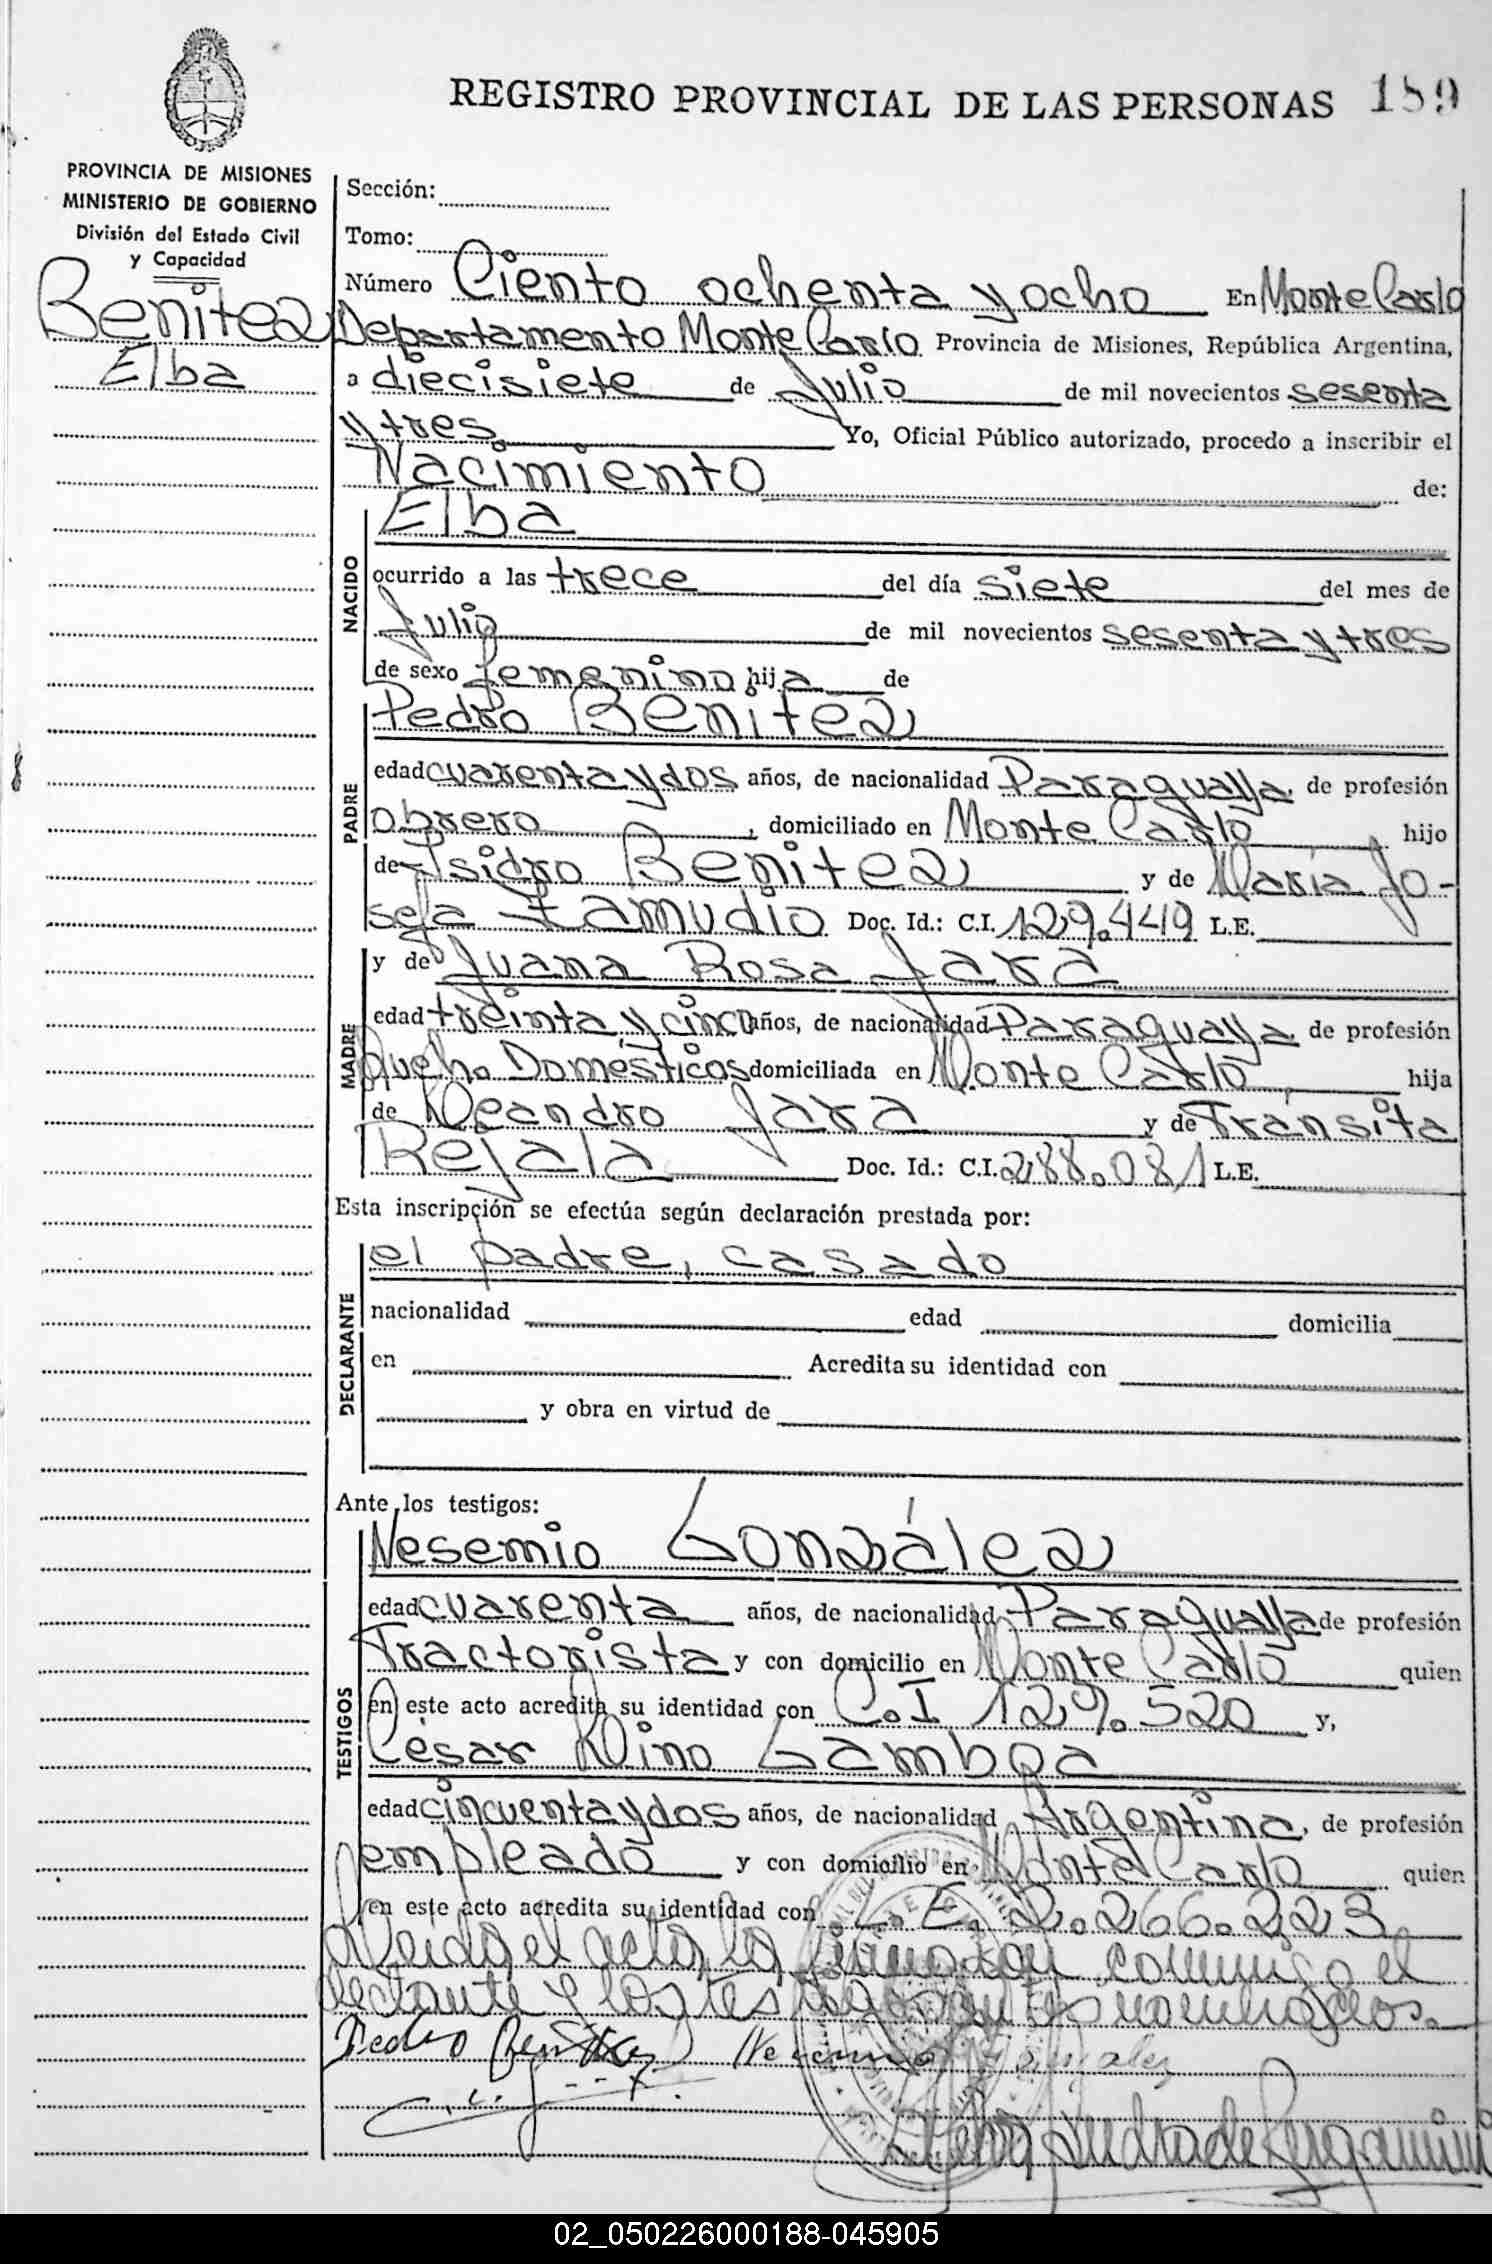 REGISTRO PROVINCIAL DE LAS PERSONAS 189
PROVINCIA DE MISIONES
MINISTERIO DE GOBIERNO
División del Estado Civil
y Capacidad
Benitez
Elba
Sección:
Tomo:
Número Ciento ochenta y ocho En Monte Carlo
Departamento Monte Carlo Provincia de Misiones, República Argentina,
a diecisiete de Julio de mil novecientos sesenta
y tres. Yo, Oficial Público autorizado, procedo a inscribir el
Nacimiento de:
NACIDO
Elba
ocurrido a las trece del día siete del mes de
Julio de mil novecientos sesenta y tres
de sexo femenino hija de
PADRE
Pedro Benitez
edad cuarenta y dos años, de nacionalidad Paraguaya, de profesión
obrero, domiciliado en Monte Carlo, hijo
de Isidro Benitez y de María Jo-
sefa Zamudio Doc. Id.: C.I. 129.449 L.E.
MADRE
y de Juana Rosa Jara
edad treinta y cinco años, de nacionalidad Paraguaya, de profesión
Queh. Domésticos domiciliada en Monte Carlo, hija
de Leandro Jara y de Tránsita
Rejala Doc. Id.: C.I. 288.081 L.E.
Esta inscripción se efectúa según declaración prestada por:
DECLARANTE
el padre, casado
nacionalidad edad domicilia
en Acredita su identidad con
y obra en virtud de
Ante los testigos:
TESTIGOS
Nesemio González
edad cuarenta años, de nacionalidad Paraguaya de profesión
Tractorista y con domicilio en Monte Carlo quien
en este acto acredita su identidad con C.I 129.520 y,
César Lino Gamboa
edad cincuenta y dos años, de nacionalidad Argentina, de profesión
empleado y con domicilio en Monte Carlo quien
en este acto acredita su identidad con L.E. 2.266.223
Leida el acta, la firmaron conmigo el
dectante y los testigos nombrados.
Pedro Benitez Nesemio Gonzalez
02_050226000188-045905